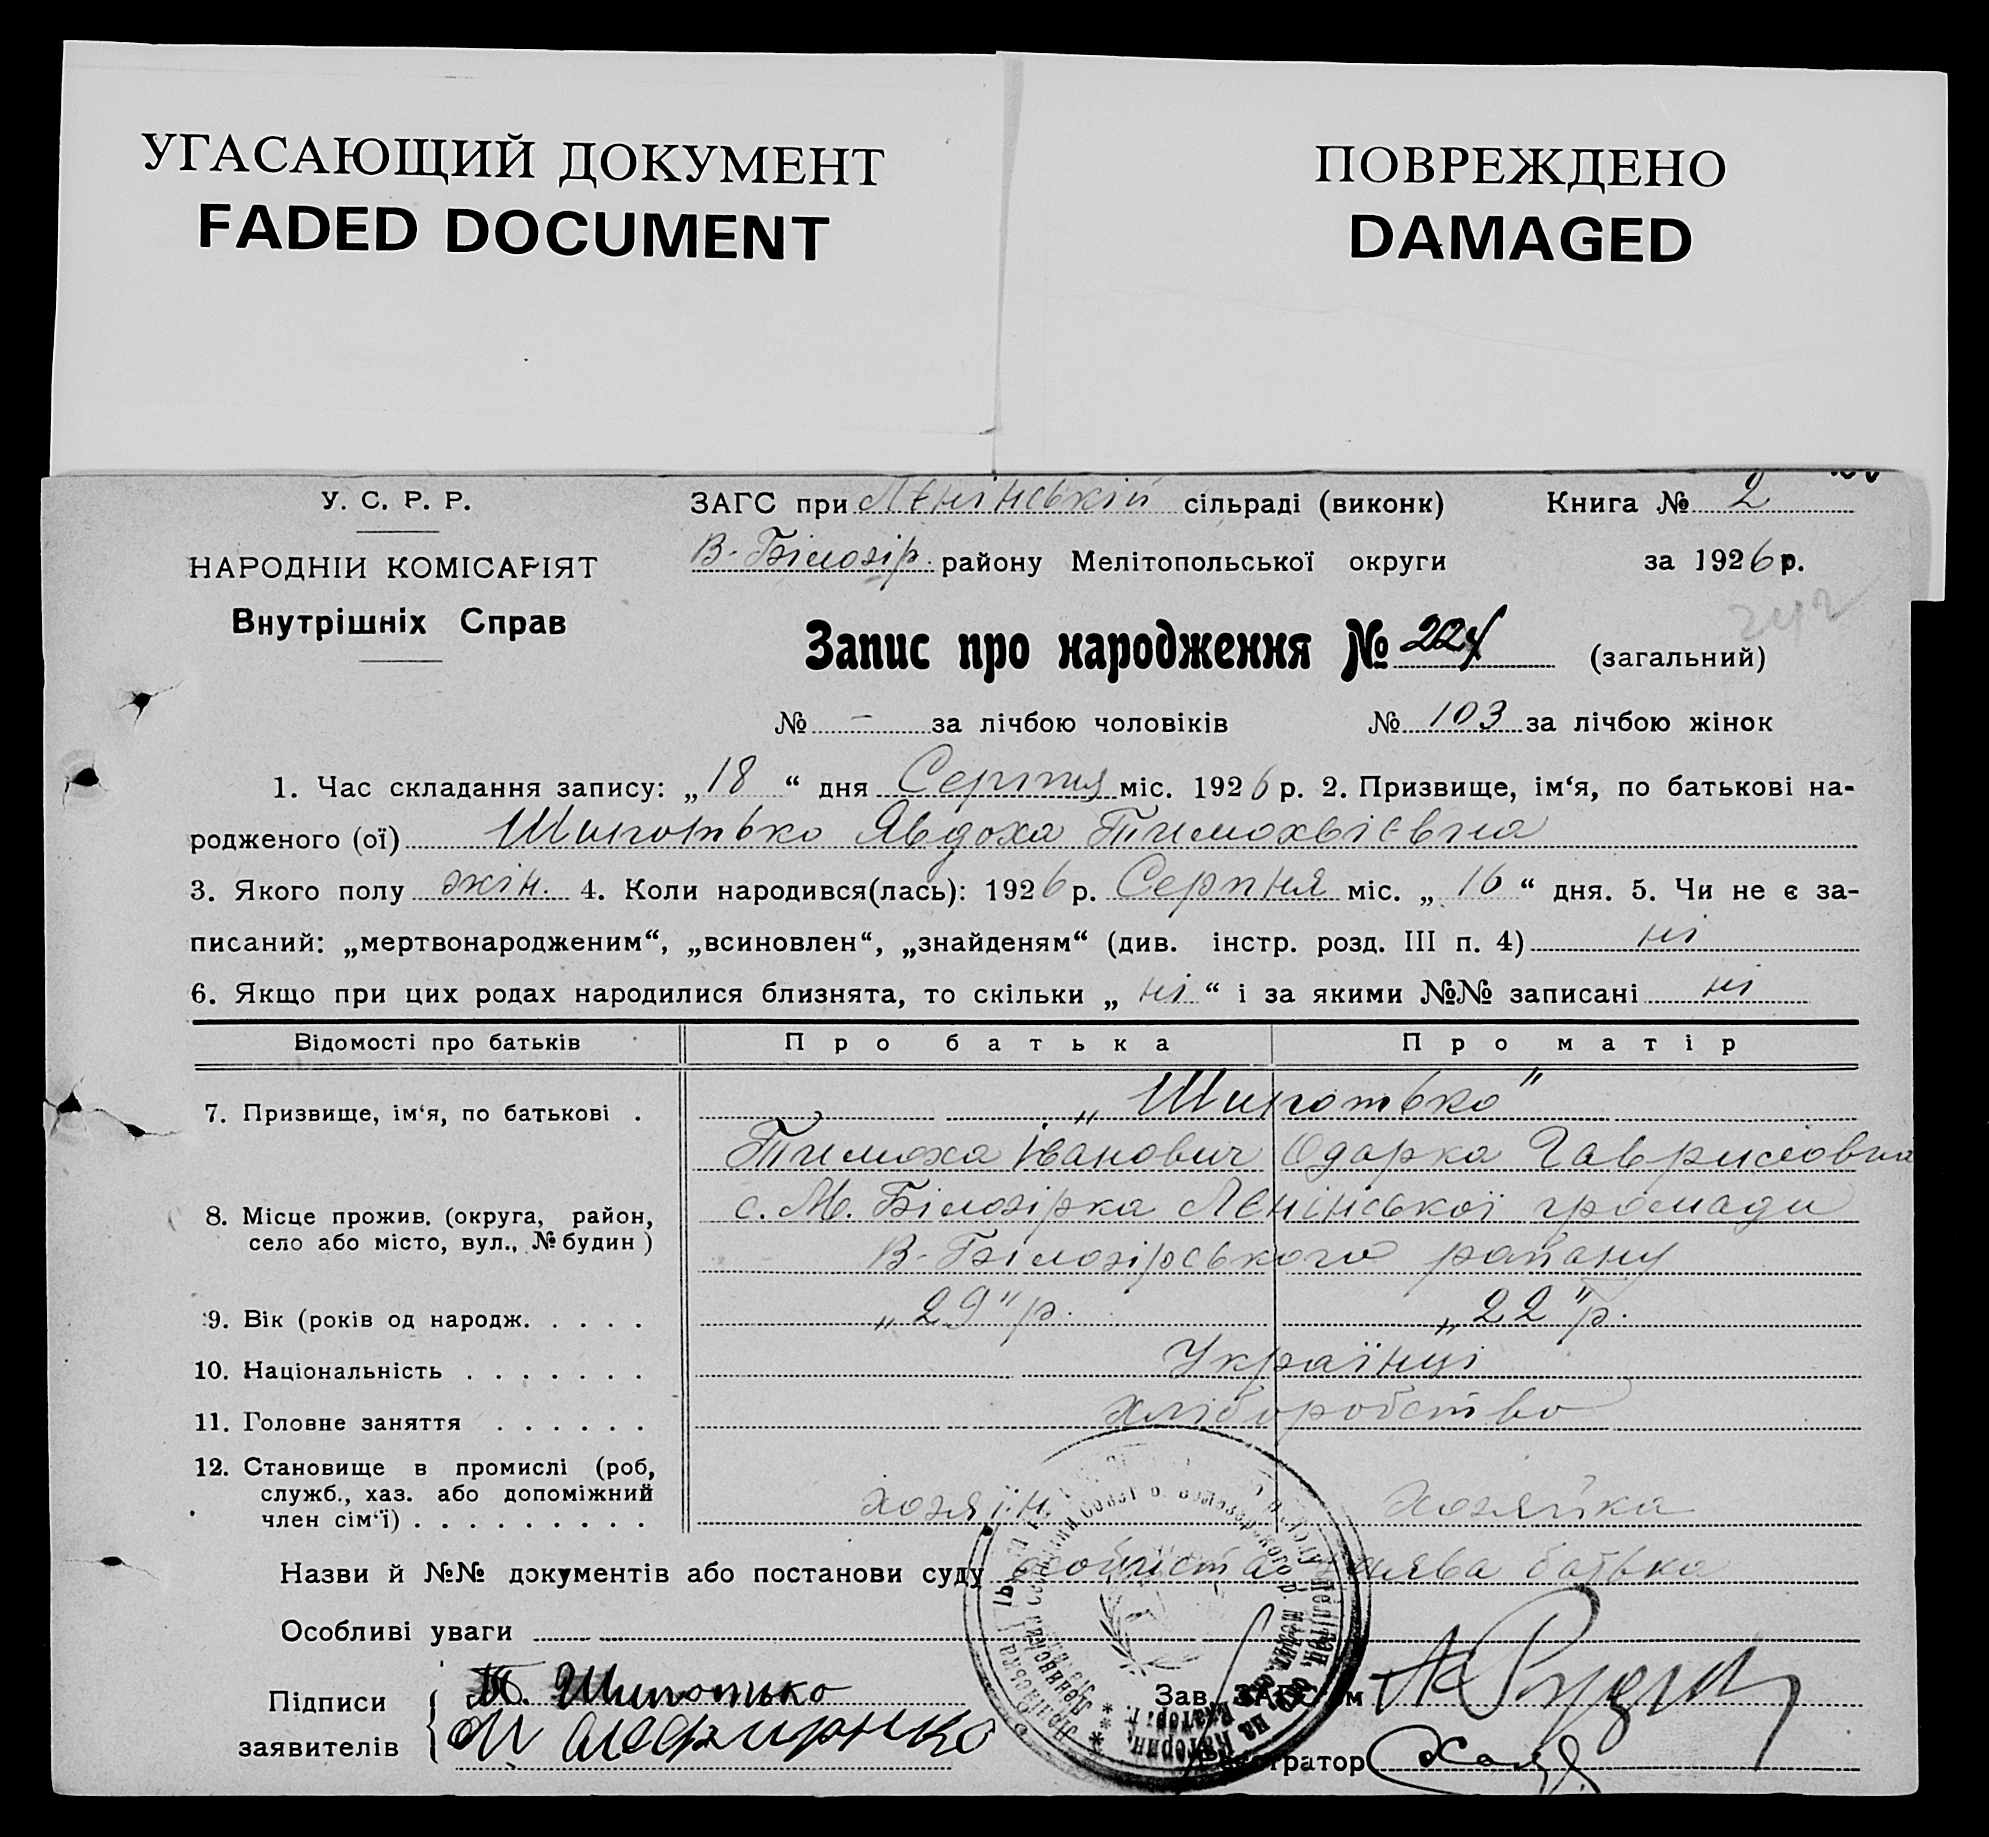 УГАСАЮЩИЙ ДОКУМЕНТ
FADED DOCUMENT
ПОВРЕЖДЕНО
DAMAGED
У. С. Р. Р.
НАРОДНІЙ КОМІСАРІЯТ
Внутрішніх Справ
ЗАГС при Ленінській сільраді (виконк) Книга № 2
В-Білозір. району Мелітопольської округи за 1926 р.
242
Запис про народження № 224 (загальний)
№ - за лічбою чоловіків № 103 за лічбою жінок
1. Час складання запису: „18“ дня Серпня міс. 1926 р. 2. Призвище, ім‘я, по батькові на-
родженого (ої) Шипотько Явдоха Тимохвієвна
3. Якого полу жін. 4. Коли народився(лась): 1926 р. Серпня міс. „16“ дня. 5. Чи не є за-
писаний: „мертвонародженим“, „всиновлен“, „знайденям“ (див. інстр. розд. III п. 4) ні
6. Якщо при цих родах народилися близнята, то скільки „ні“ і за якими №№ записані ні
Відомості про батьків Про батька Про матір
7. Призвище, ім‘я, по батькові . „Шипотько"
Тимоха Іванович Одарка Гавриловна
8. Місце прожив. (округа, район, село або місто, вул., № будин) с. М. Білозірка Ленінської громади
В-Білозірського району
9. Вік (років од народж. . . . . . „29" р. „22" р.
10. Національність . . . . . . . Українці
11. Головне заняття . . . . . . хліборобство
12. Становище в промислі (роб, служб., хаз. або допоміжний член сім‘ї) . . . . . . . . . хозяїн хозяйка
Назви й №№ документів або постанови суду заява батька
Особливі уваги
Підписи заявителів Т. Шипотько
Зав. ЗАГС‘ом
Реєстратор